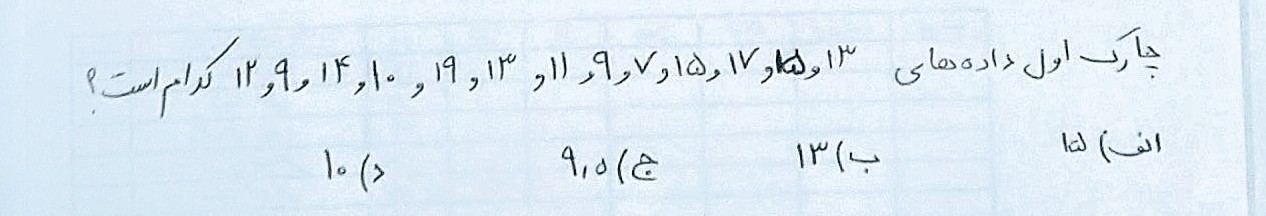 چارک اول داده‌های ۱۳ و ۱۵ و ۱۷ و ۱۵ و ۷ و ۹ و ۱۱ و ۱۳ و ۱۹ و ۱۰ و ۱۴ و ۹ و ۱۲ کدام است؟
الف) ۱۵ ب) ۱۳ ج) ۹,۵ د) ۱۰